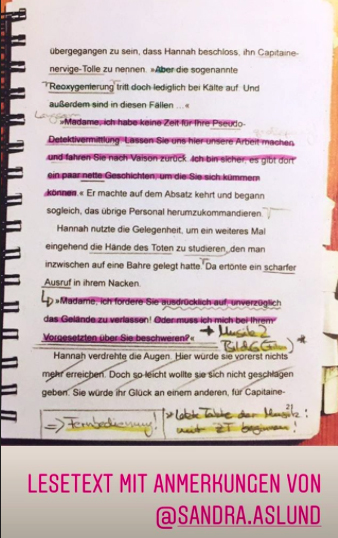 übergegangen zu sein, dass Hannah beschloss, ihn Capitaine-
nervige-Tolle zu nennen. »Aber die sogenannte
Reoxygenierung tritt doch lediglich bei Kälte auf. Und
außerdem sind in diesen Fällen ...«
»Madame, ich habe keine Zeit für Ihre Pseudo-
Detektivermittlung. Lassen Sie uns hier unsere Arbeit machen
und fahren Sie nach Vaison zurück. Ich bin sicher, es gibt dort
ein paar nette Geschichten, um die Sie sich kümmern
können.« Er machte auf dem Absatz kehrt und begann
sogleich, das übrige Personal herumzukommandieren.
Hannah nutzte die Gelegenheit, um ein weiteres Mal
eingehend die Hände des Toten zu studieren, den man
inzwischen auf eine Bahre gelegt hatte. Da ertönte ein scharfer
Ausruf in ihrem Nacken.
»Madame, ich fordere Sie ausdrücklich auf, unverzüglich
das Gelände zu verlassen! Oder muss ich mich bei Ihrem
Vorgesetzten über Sie beschweren?«
→ Musik 2
Hannah verdrehte die Augen. Hier würde sie vorerst nichts
mehr erreichen. Doch so leicht wollte sie sich nicht geschlagen
geben. Sie würde ihr Glück an einem anderen, für Capitaine-
=> Fernbedienung!
letzte Takte der Musik 2!
mit ZT beginnen!
LESETEXT MIT ANMERKUNGEN VON
@SANDRA.ASLUND